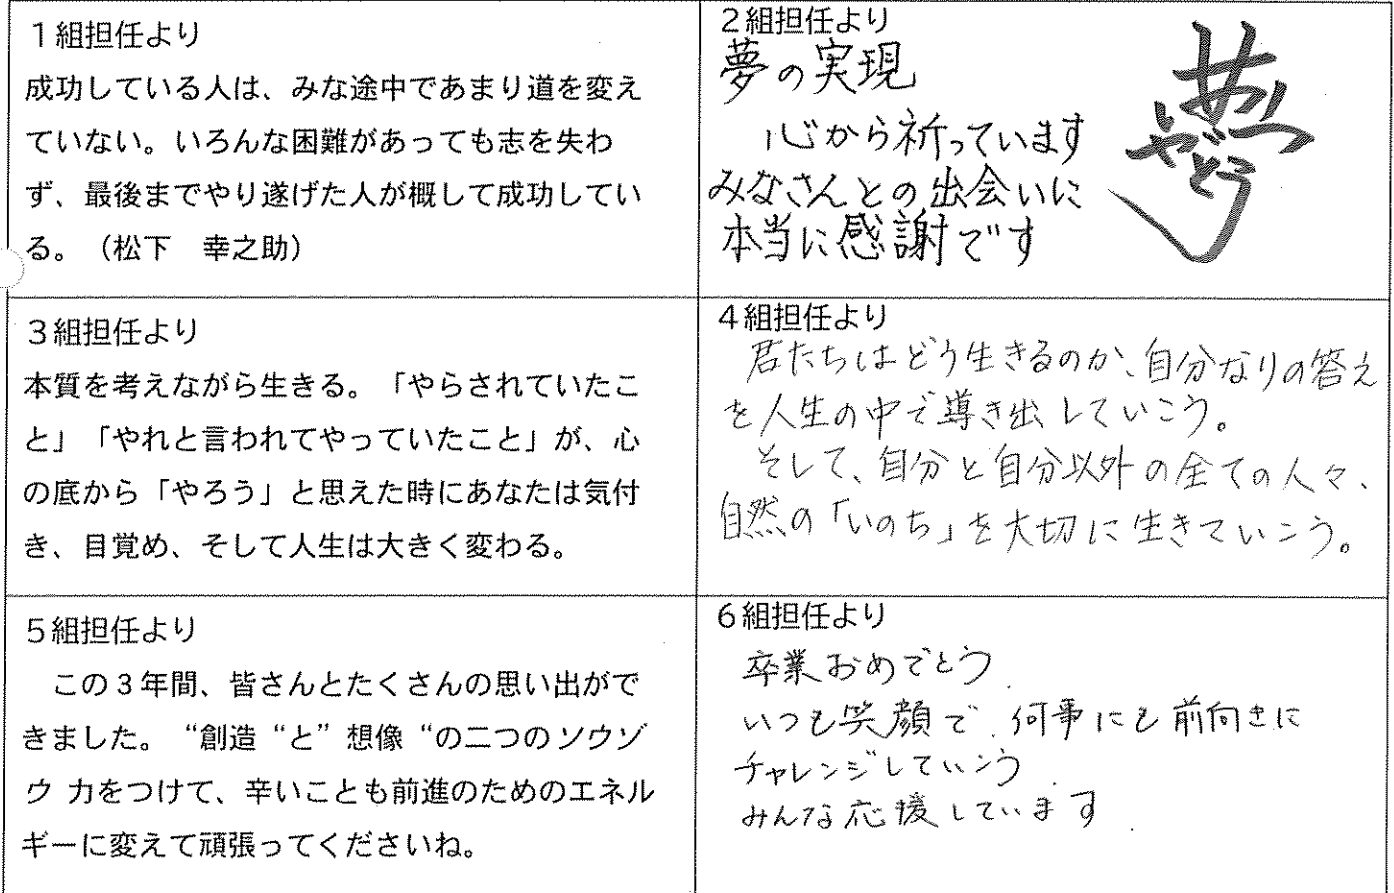 １組担任より
成功している人は、みな途中であまり道を変え
ていない。いろんな困難があっても志を失わ
ず、最後までやり遂げた人が概して成功してい
る。（松下　幸之助）
２組担任より
夢の実現
心から祈っています
みなさんとの出会いに
本当に感謝です
３組担任より
本質を考えながら生きる。「やらされていたこ
と」「やれと言われてやっていたこと」が、心
の底から「やろう」と思えた時にあなたは気付
き、目覚め、そして人生は大きく変わる。
４組担任より
君たちはどう生きるのか、自分なりの答え
を人生の中で導き出していこう。
そして、自分と自分以外の全ての人々、
自然の「いのち」を大切に生きていこう。
５組担任より
この３年間、皆さんとたくさんの思い出がで
きました。“創造“と”想像“の二つのソウゾ
ウ 力をつけて、辛いことも前進のためのエネル
ギーに変えて頑張ってくださいね。
６組担任より
卒業おめでとう
いつも笑顔で 何事にも前向きに
チャレンジしていこう
みんな応援しています